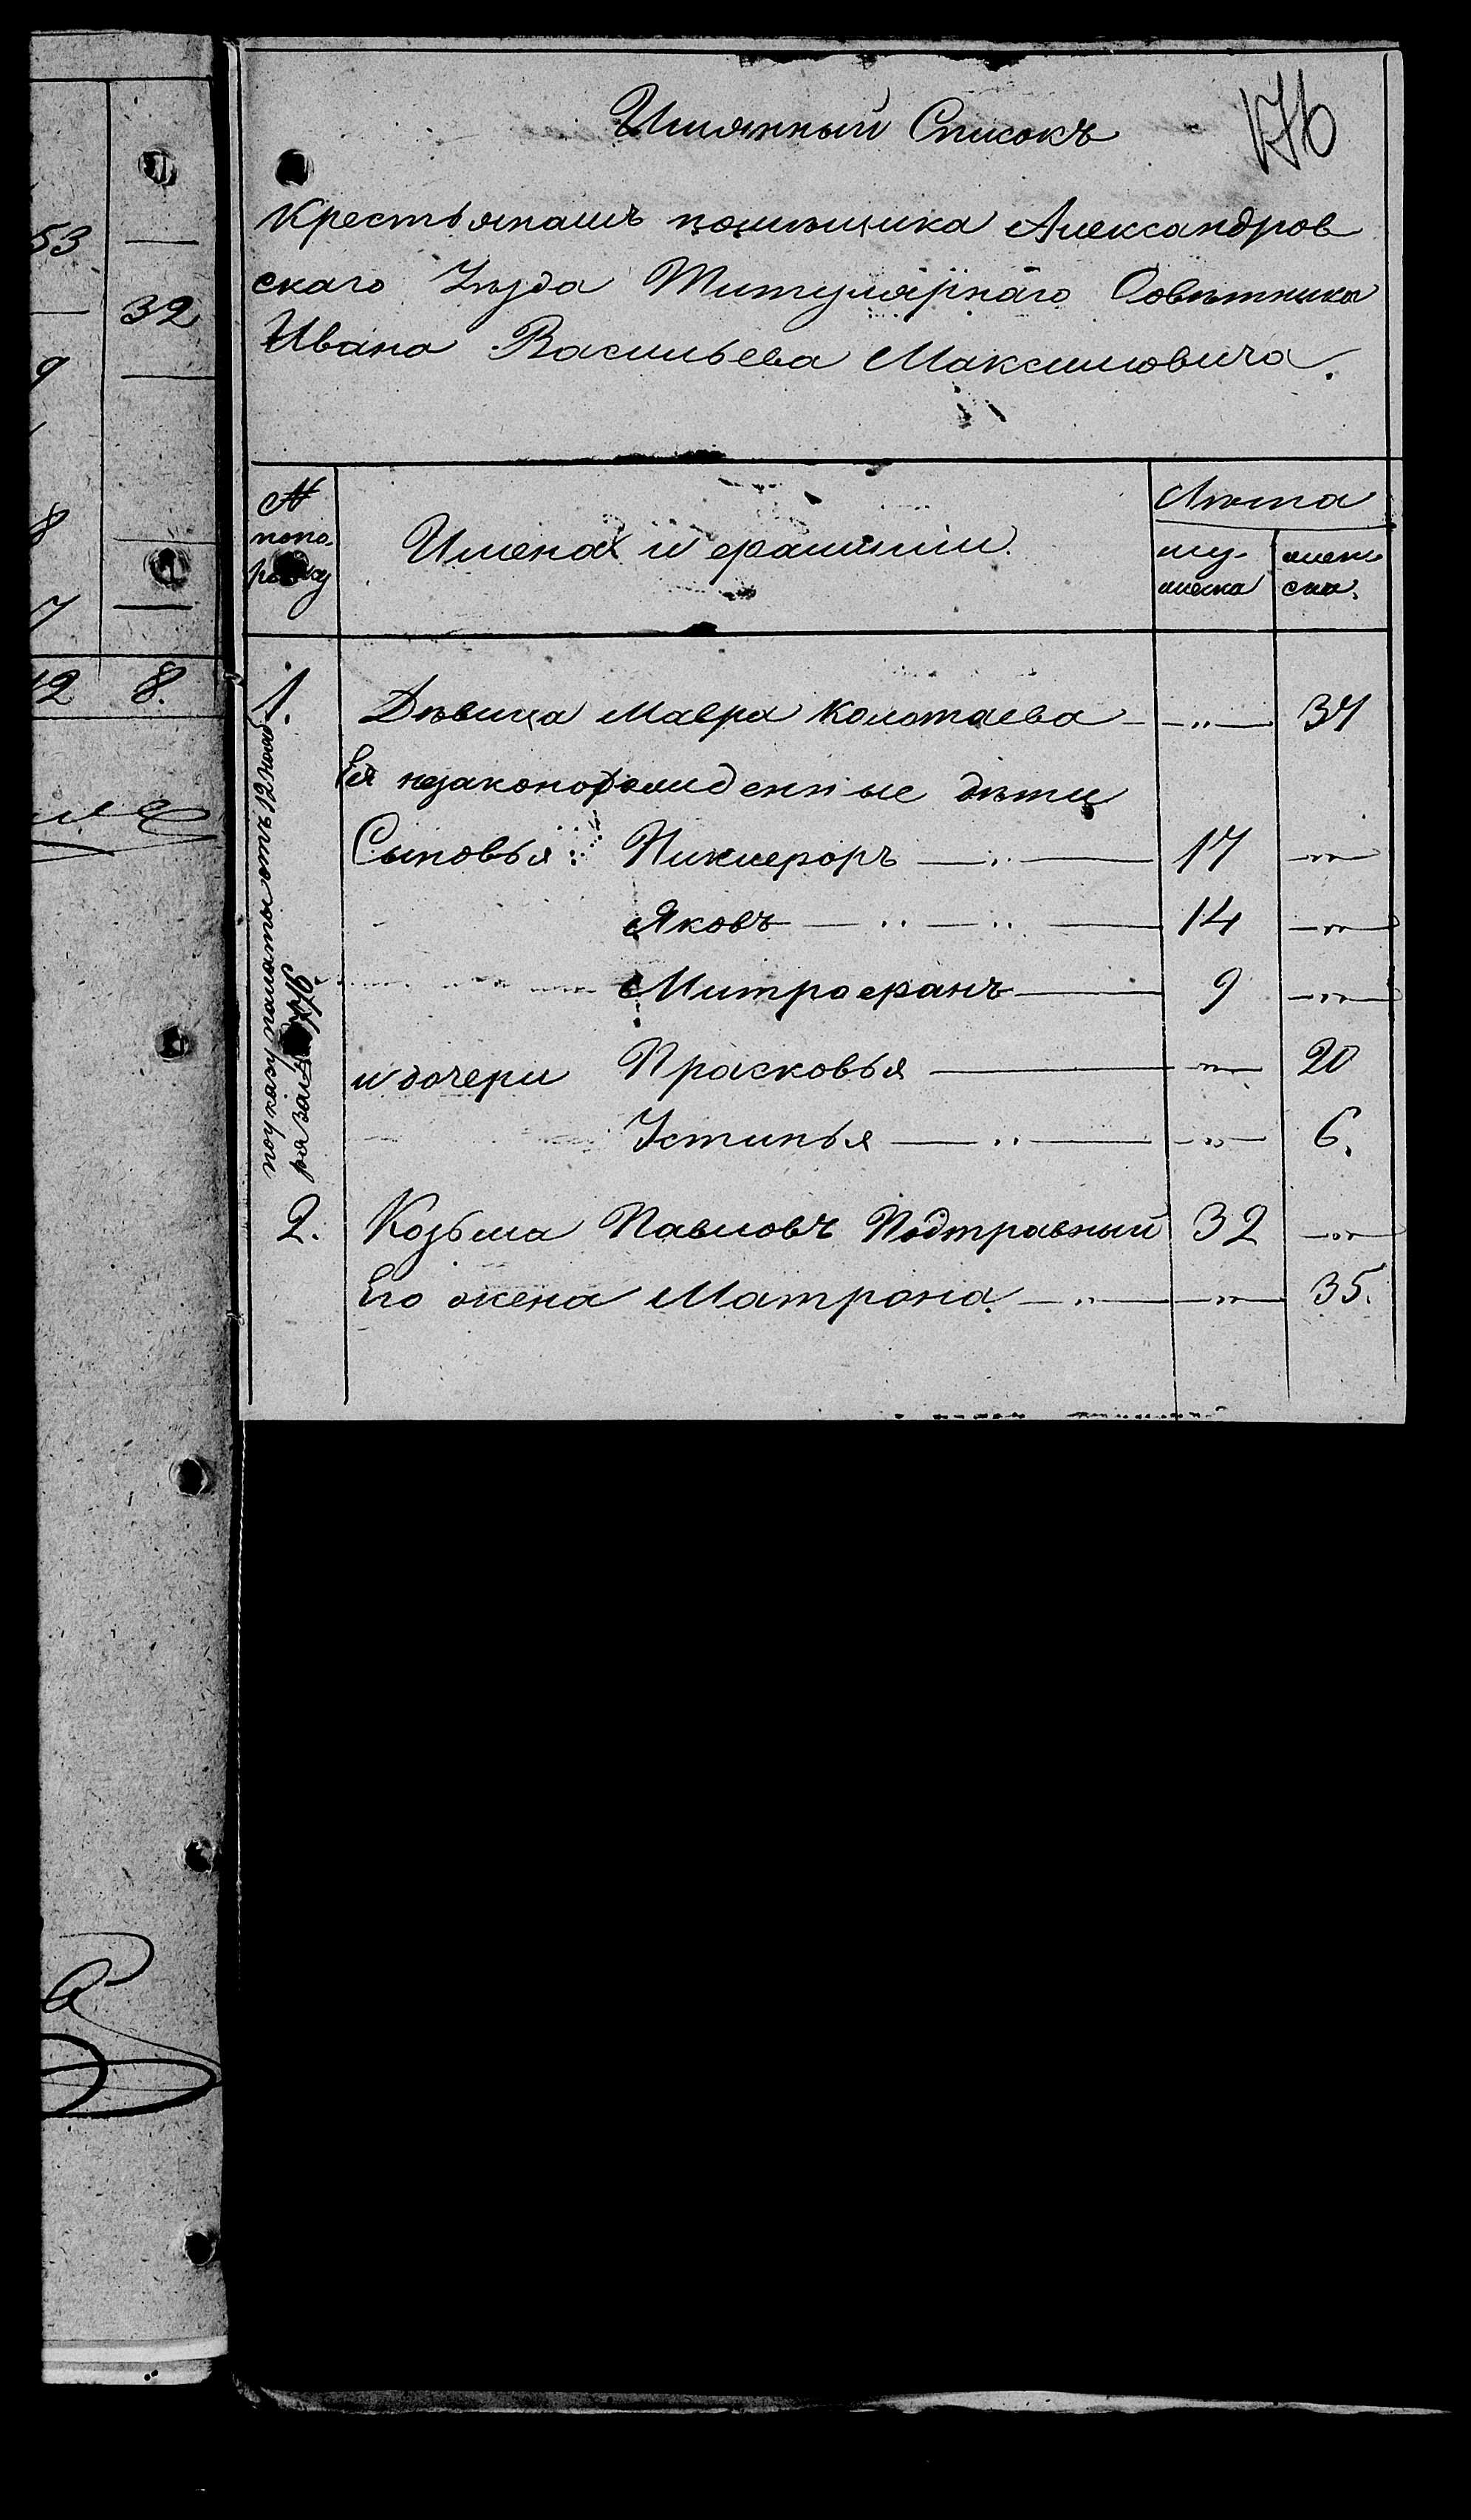 53 —
— 32
9 —
8 —
7 —
12 8.
176
Имянный Списокъ
Крестьянамъ помѣщика Александров
скаго Уѣзда Титулярнаго Совѣтника
Ивана Васильева Максимовича.
№ попо- рядку Имена и фамиліи. Лѣта
му- жеска жен- ска.
1. Дѣвица Мавра Колотаева — „ — 37
Ея незаконорожденные дѣти
Сыновья: Никифоръ — „ — 17 — „ —
Яковъ — „ — „ — 14 — „ —
Митрофанъ — 9 — „ —
и дочери Прасковья — „ — 20
Устинья — „ — „ — 6.
2. Козьма Павловъ Подтравный 32 — „ —
Его жена Матрона — „ — „ — 35.
показаны отъ 12 нояб
ря за №